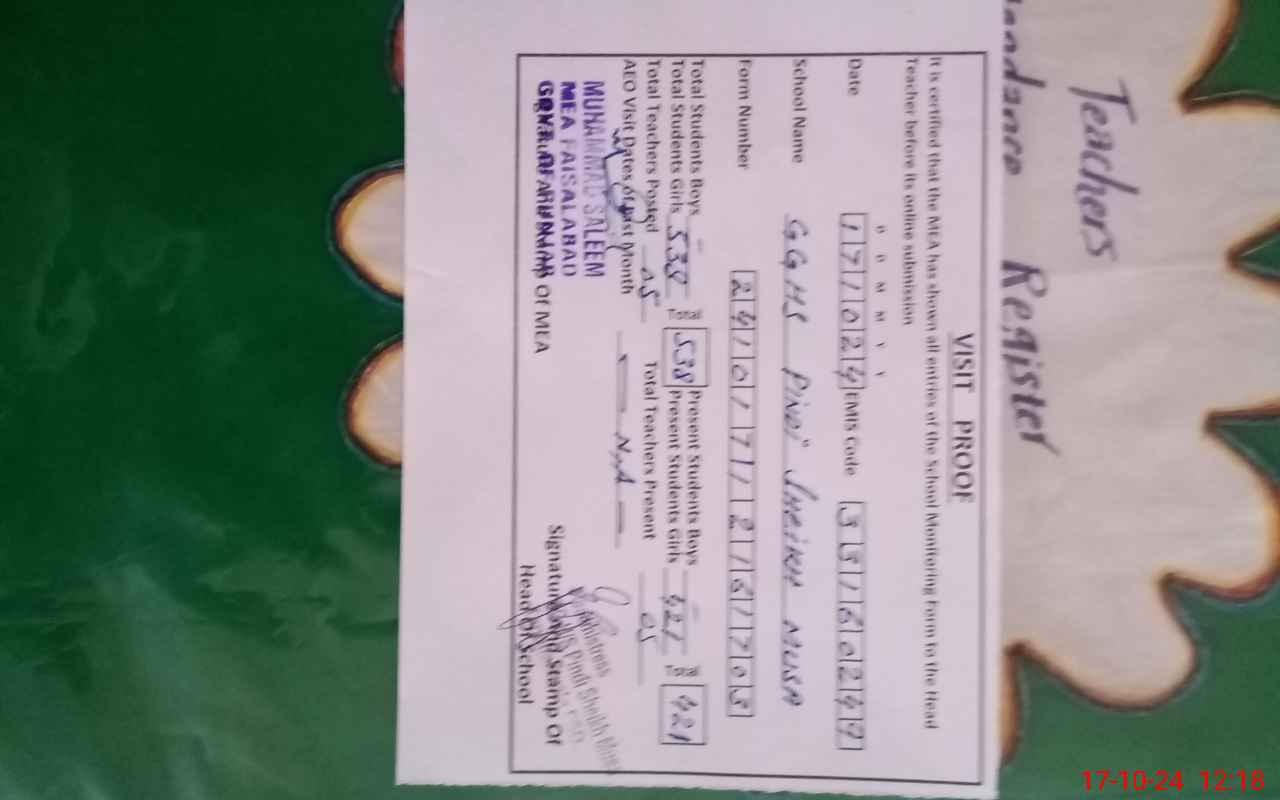 Teachers
Register
VISIT PROOF
It is certified that the MEA has shown all entries of the School Monitoring Form to the Head
Teacher before its online submission
D D M M Y Y
Date 171024 EMIS Code 33160249
School Name GGHS PINDI SHEIKH MUSA
Form Number 24101712161703
Total Students Boys - Total 538 Present Students Boys - Total 421
Total Students Girls 538 Present Students Girls 421
Total Teachers Posted 05 Total Teachers Present 05
AEO Visit Dates of Last Month — N.A —
MUHAMMAD SALEEM
MEA FAISALABAD
GOVT. OF PUNJAB
Of MEA
Signature and Stamp Of
Head Of School
Pindi Sheikh Musa
17-10-24 12:18